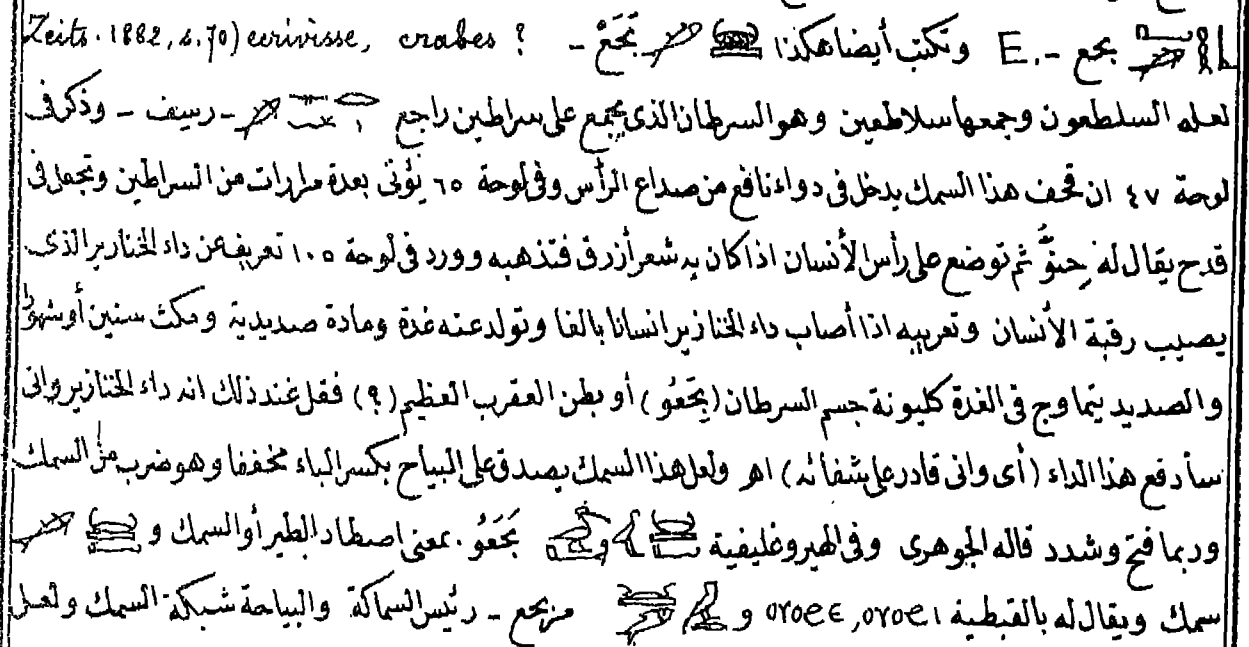 بحع - .E وتكتب أيضا هكذا بَحَعْ - ? Zeits. 1882, s. 70) ecrivisse, crabes
لعله السلطعون وجمعها سلاطعين وهو السرطان الذى يجمع على سراطين راجع - رسيف - وذكر فى
لوحة ٤٧ ان قحف هذا السمك يدخل فى دواء نافع من صداع الرأس وفى لوحة ٦٥ يؤتى بعدة مرارات من السراطين وتجعل فى
قدح يقال له حِنوّ ثم توضع على رأس الأنسان اذا كان به شعر أزرق فتذهبه وورد فى لوحة ١٠٥ تعريف عن داء الخنازير الذى
يصيب رقبة الأنسان وتعريبه اذا أصاب داء الخنازير انسانا بالغا وتولد عنه غدة ومادة صديدية ومكث سنين أو شهورا
والصديد يتماوج فى الغدة كليونة جسم السرطان (بِحَعُو) أو بطن العقرب العظيم (؟) فقل عند ذلك انه داء الخنازير وانى
سأدفع هذا الداء (أى وانى قادر على شفائه) اهـ ولعل هذا السمك يصدق على البياح بكسر الباء مخففا وهو ضرب من السمك
وربما فتح وشدد قاله الجوهرى وفى الهيروغليفية و بَحَعُو . بمعنى اصطاد الطير أو السمك و
سمك ويقال له بالقبطية ⲟⲩⲟϩⲉ, ⲟⲩⲟϩⲓ و مزبحع - رئيس السماكة والبياحة شبكة السمك ولعل